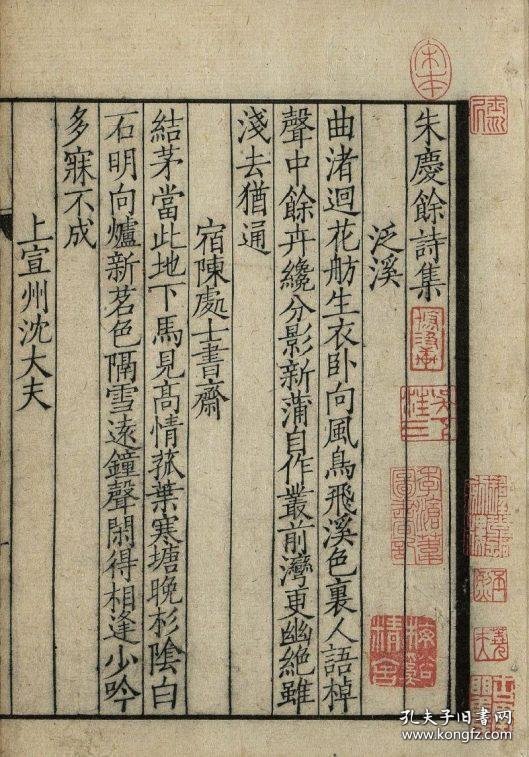 朱慶餘詩集
泛溪
曲渚迴花舫生衣卧向風鳥飛溪色裏人語棹
聲中餘卉纔分影新蒲自作叢前灣更幽絶雖
淺去猶通
宿陳處士書齋
結茅當此地下馬見高情菰葉寒塘晚杉陰白
石明向爐新茗色隔雪遠鐘聲閑得相逢少吟
多寐不成
上宣州沈大夫
宋本
孔夫子旧书网
www.kongfz.com